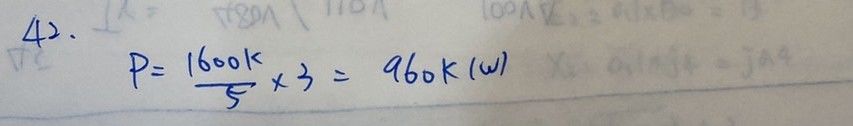 42.
P = 1600K/5 × 3 = 960K (W)